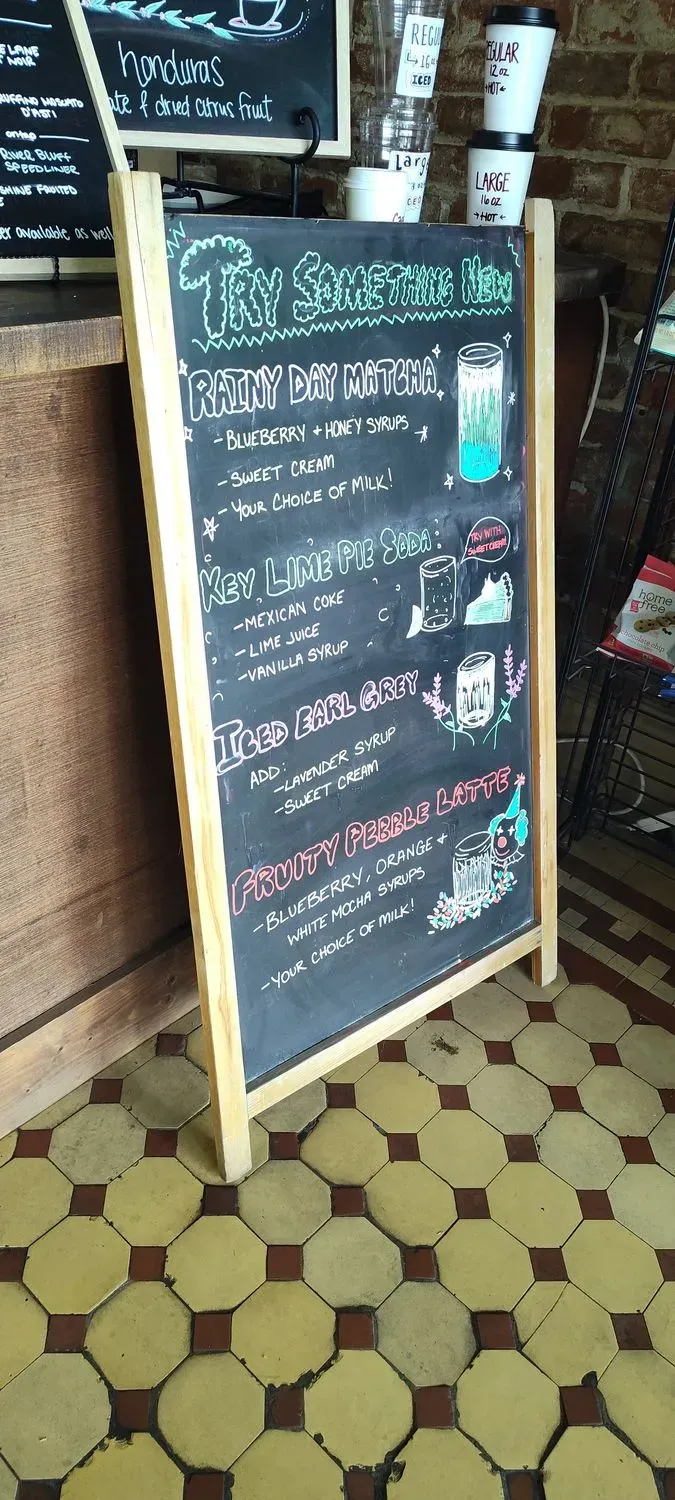 honduras
& dried citrus fruit
RIVER BLUFF
SPEEDLINER
FRUITED
available as well
REGULAR
12 oz
HOT
ICED
LARGE
16 oz
HOT
TRY SOMETHING NEW
RAINY DAY MATCHA
- BLUEBERRY + HONEY SYRUPS
- SWEET CREAM
- YOUR CHOICE OF MILK!
KEY LIME PIE SODA
TRY WITH
SWEET CREAM!
- MEXICAN COKE
- LIME JUICE
- VANILLA SYRUP
ICED EARL GREY
ADD:
- LAVENDER SYRUP
- SWEET CREAM
FRUITY PEBBLE LATTE
- BLUEBERRY, ORANGE +
WHITE MOCHA SYRUPS
- YOUR CHOICE OF MILK!
home
free
chocolate chip